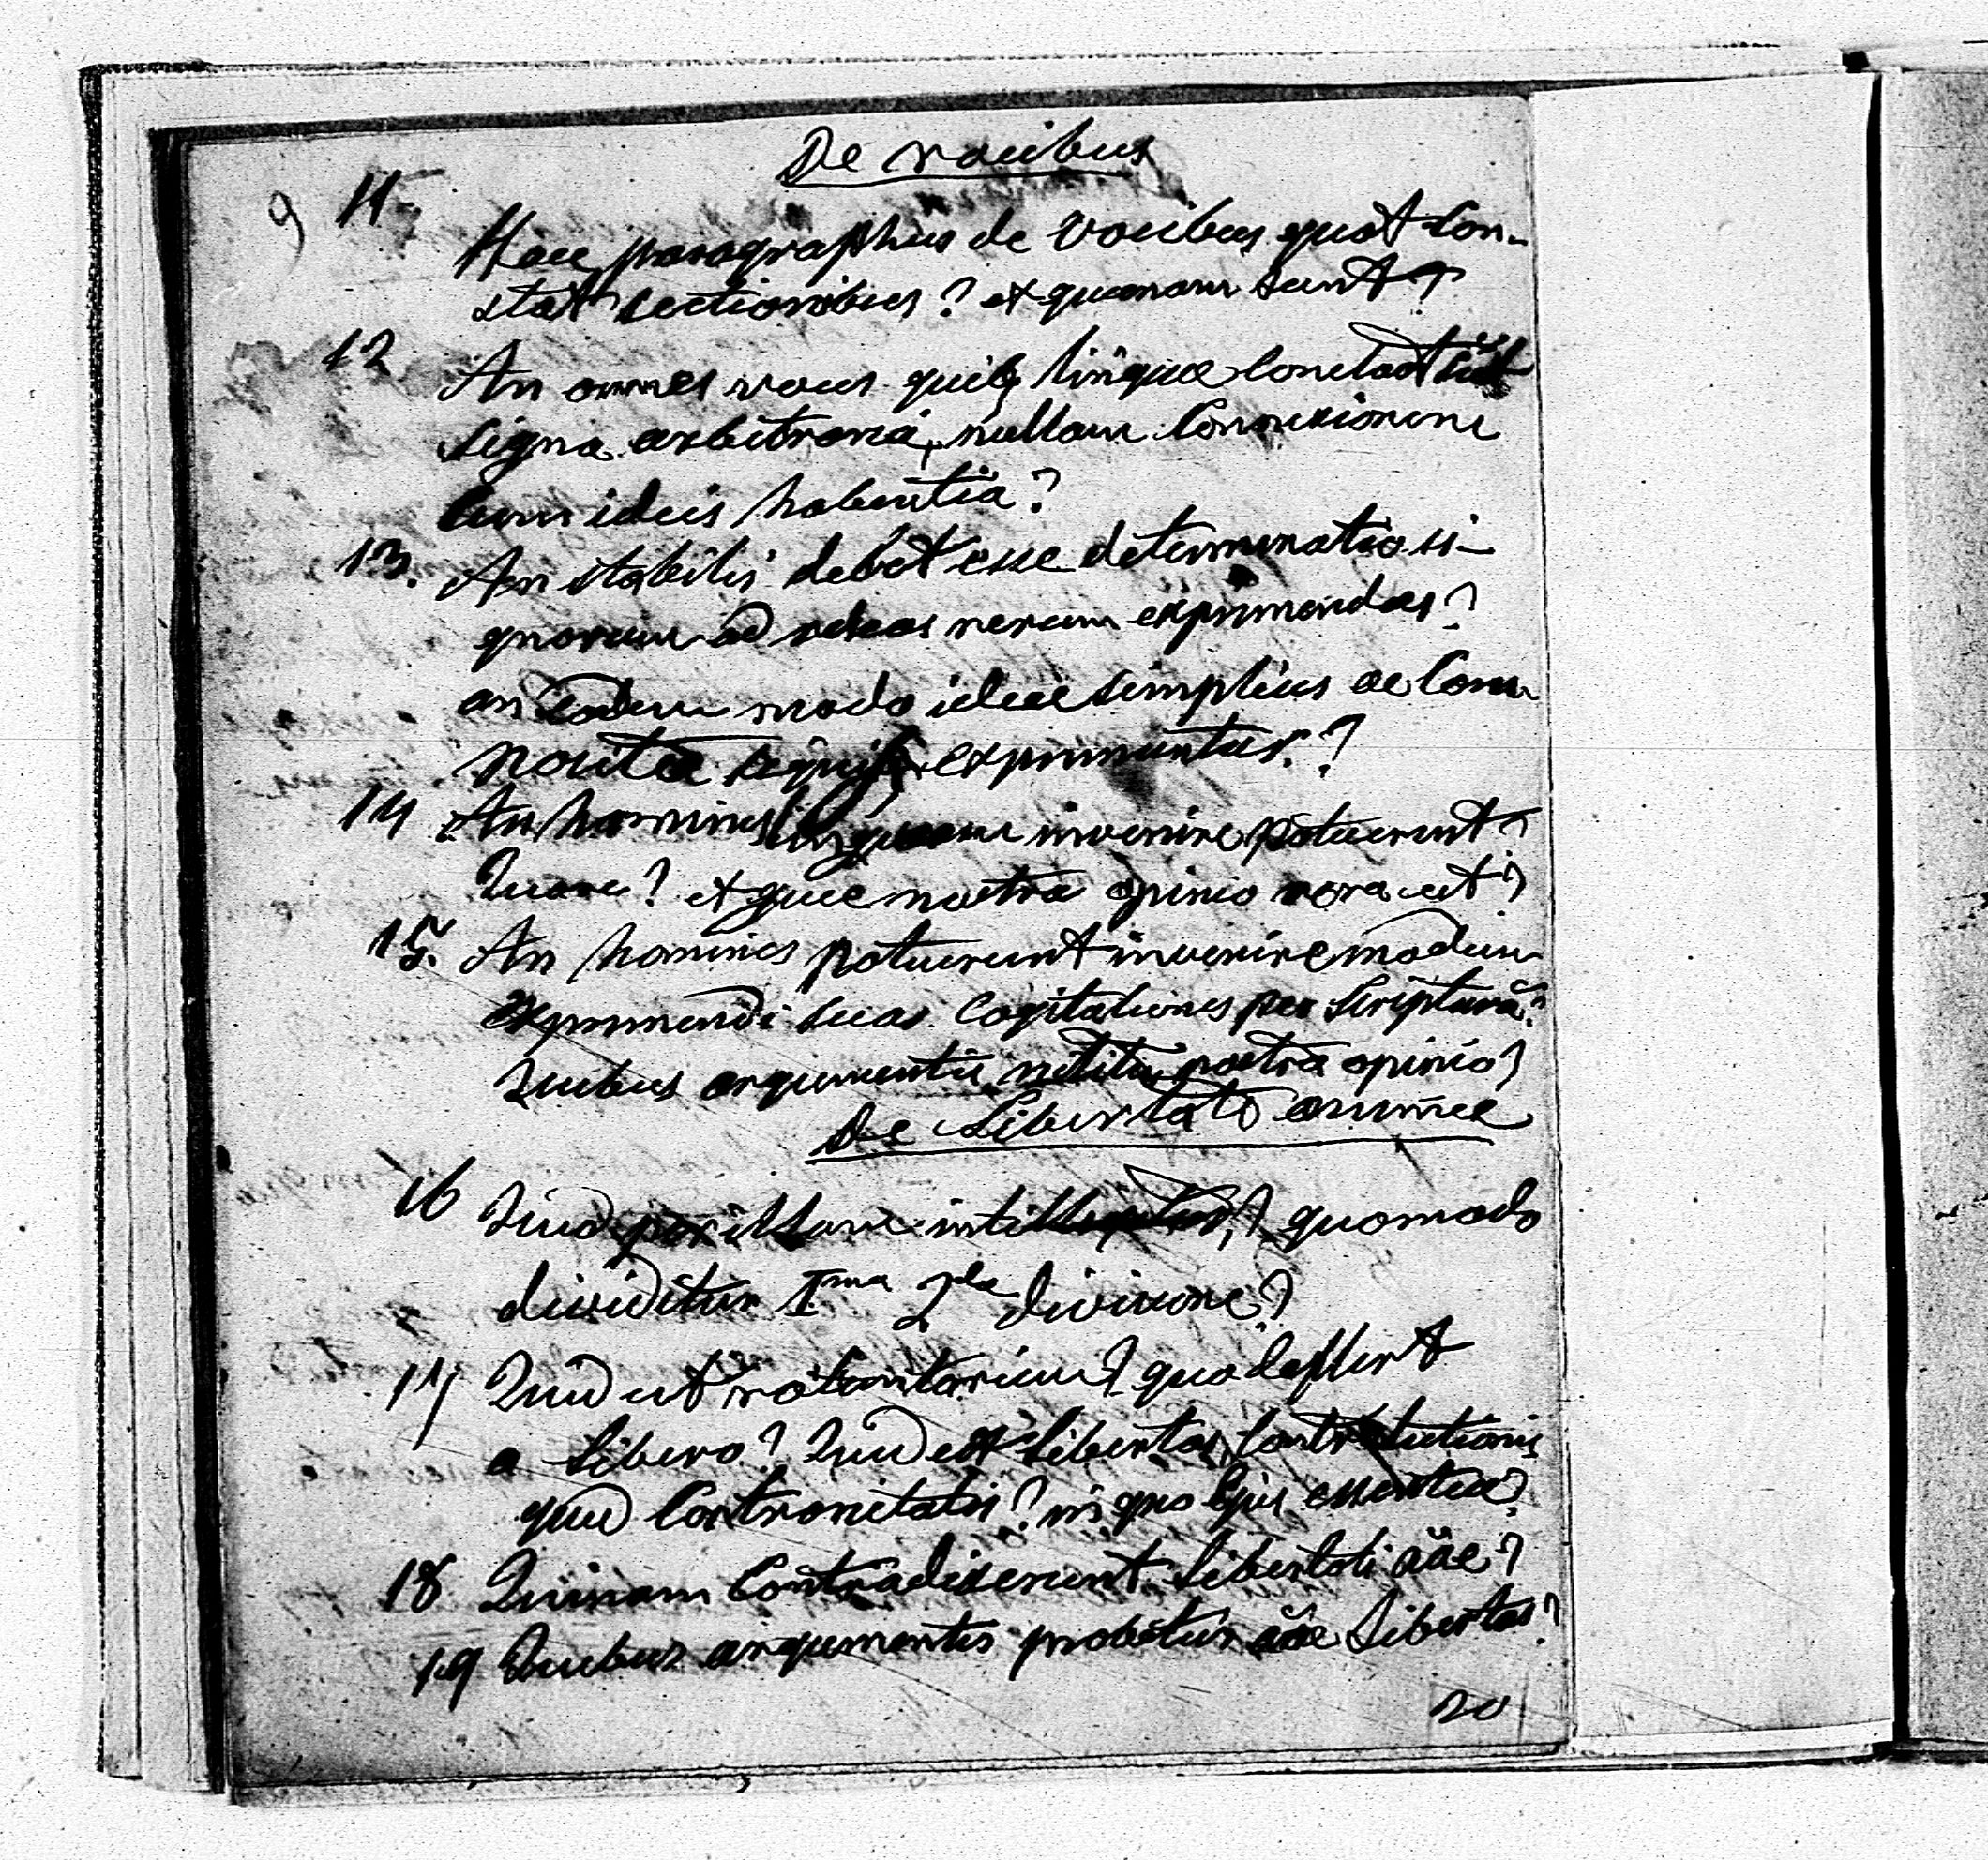 De vocibus
9 11.
Haec paragraphus de vocibus quot con-
stat sectionibus? et quaenam sunt?
12 An omnes voces quibq linguae constat sũt
signa arbitraria, nullam connexionem
cum ideis habentia?
13. An stabilis debet esse determinatio si-
gnorum ad ideas rerum exprimendas?
an eodem modo ideae simplices ac com-
positae signis exprimuntur?
14 An homines linguam invenire potuerunt?
Quare? et quae nostra opinio vera est?
15. An homines potuerunt invenire modum
exprimendi suas cogitationes per scripturã?
Quibus argumentis nititur nostra opinio?
De Libertate animae
16 Quid per illam quomodo
dividitur Ima 2da divisione?
17 Quid est voluntarium? quo differt
a libero? Quid est libertas
quid contrarietatis? in quo ejus essentia?
18 Quinam contradixerunt libertati aãe?
19 Quibus argumentis probetur aãe libertas?
20